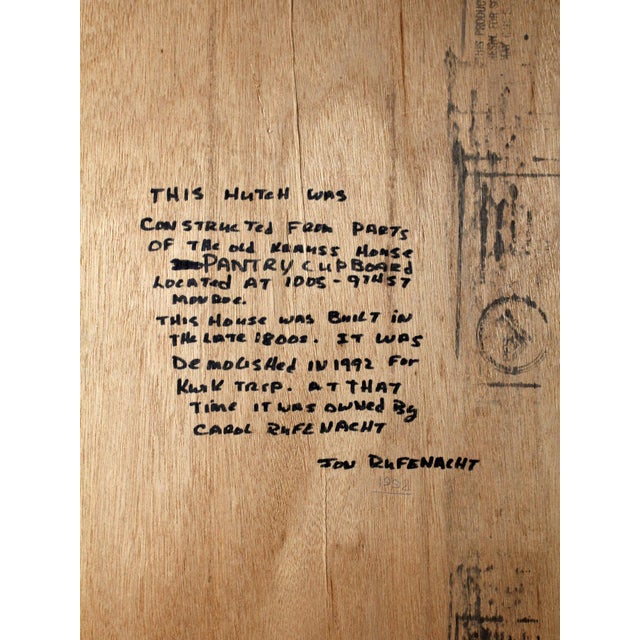 THIS PRODUC
THIS HUTCH WAS
CONSTRUCTED FROM PARTS
OF THE OLD KRAUSS HOUSE
PANTRY CUPBOARD
LOCATED AT 1005 - 9TH ST
MONROE.
THIS HOUSE WAS BUILT IN
THE LATE 1800s. IT WAS
DEMOLISHED IN 1992 FOR
KWIK TRIP. AT THAT
TIME IT WAS OWNED By
CAROL RUFENACHT
JON RUFENACHT